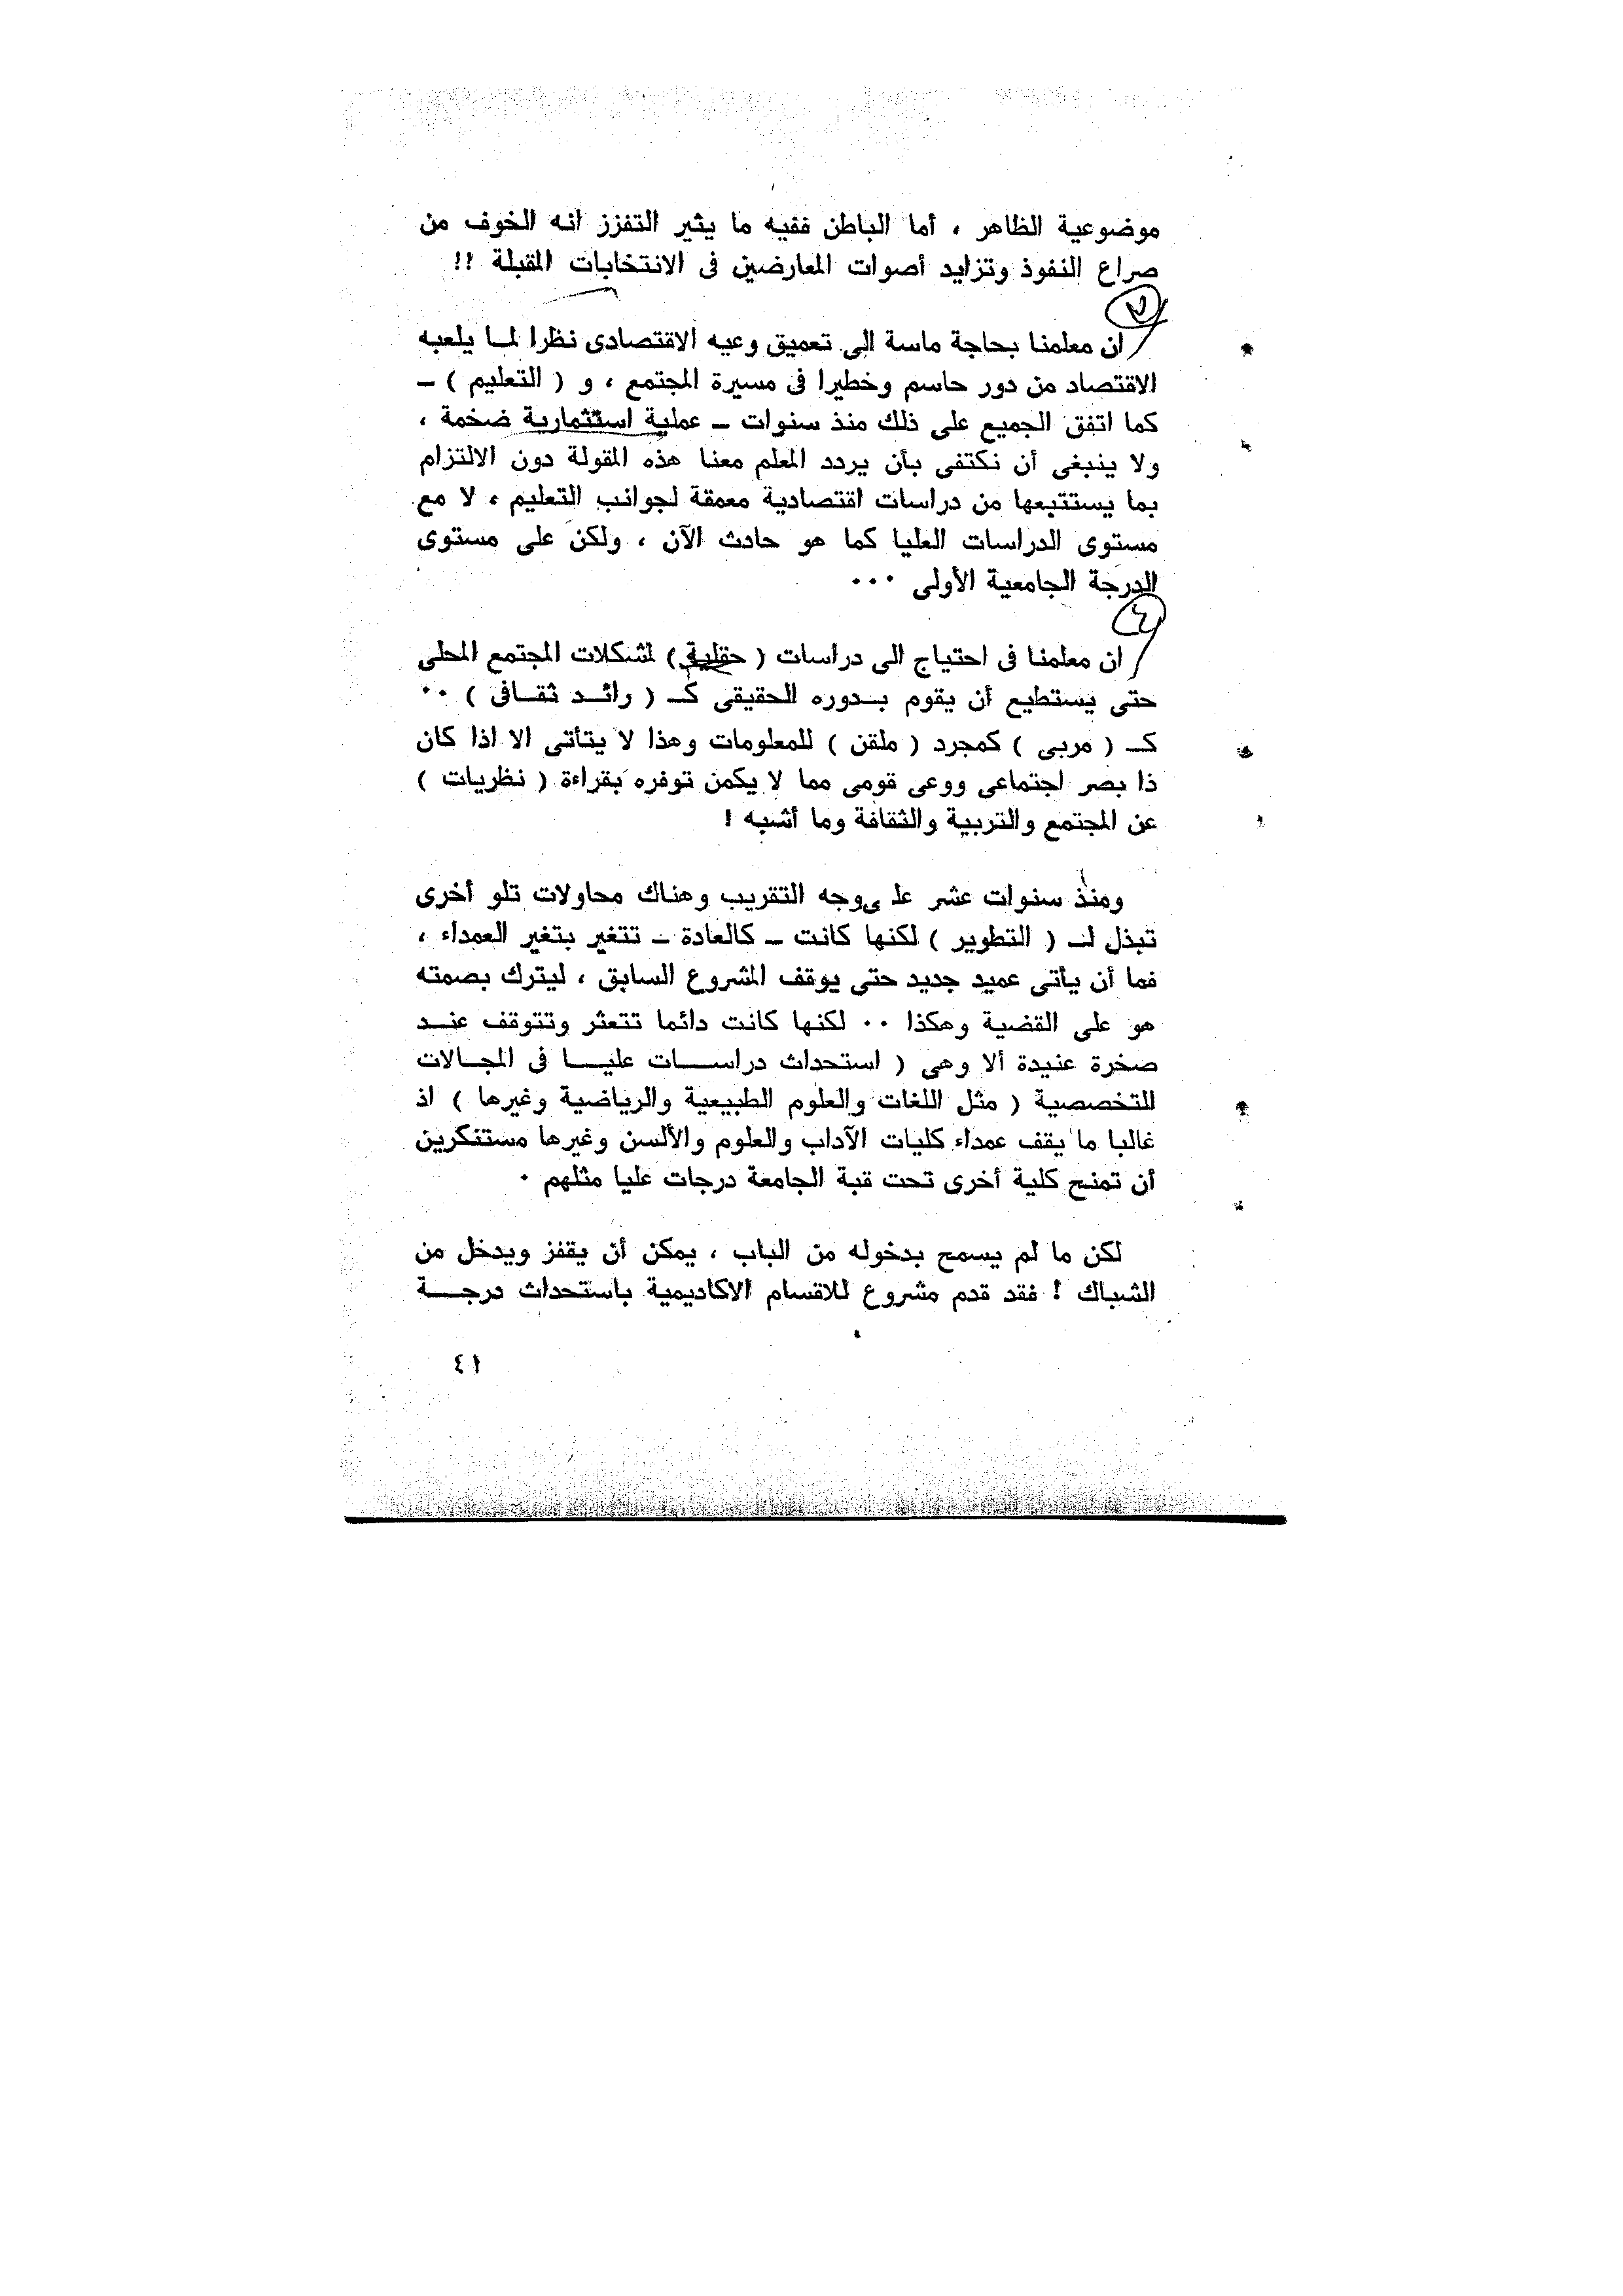 موضوعية الظاهر ، أما الباطن ففيه ما يثير التفزز انه الخوف من
صراع النفوذ وتزايد أصوات المعارضين فى الانتخابات المقبلة !!
ان معلمنا بحاجة ماسة الى تعميق وعيه الاقتصادى نظرا لمـا يلعبه
الاقتصاد من دور حاسم وخطيرا فى مسيرة المجتمع ، و ( التعليم ) ـ
كما اتفق الجميع على ذلك منذ سنوات ـ عملية استثمارية ضخمة ،
ولا ينبغى أن نكتفى بأن يردد المعلم معنا هذه المقولة دون الالتزام
بما يستتبعها من دراسات اقتصادية معمقة لجوانب التعليم ، لا مع
مستوى الدراسات العليا كما هو حادث الآن ، ولكن على مستوى
الدرجة الجامعية الأولى ٠٠٠
٤
ان معلمنا فى احتياج الى دراسات ( حقلية ) لمشكلات المجتمع المحلى
حتى يستطيع أن يقوم بـدوره الحقيقى كـ ( رائـد ثقـافى ) ٠٠
كـ ( مربى ) كمجرد ( ملقن ) للمعلومات وهذا لا يتأتى الا اذا كان
ذا بصر اجتماعى ووعى قومى مما لا يكمن توفره بقراءة ( نظريات )
عن المجتمع والتربية والثقافة وما أشبه !
ومنذ سنوات عشر علـ ىوجه التقريب وهناك محاولات تلو أخرى
تبذل لـ ( التطوير ) لكنها كانت ـ كالعادة ـ تتغير بتغير العمداء ،
فما أن يأتى عميد جديد حتى يوقف المشروع السابق ، ليترك بصمته
هو على القضية وهكذا ٠٠ لكنها كانت دائما تتعثر وتتوقف عنـد
صخرة عنيدة ألا وهى ( استحداث دراسـات عليـا فى المجـالات
التخصصية ( مثل اللغات والعلوم الطبيعية والرياضية وغيرها ) اذ
غالبا ما يقف عمداء كليات الآداب والعلوم والألسن وغيرها مستنكرين
أن تمنح كلية أخرى تحت قبة الجامعة درجات عليا مثلهم ٠
لكن ما لم يسمح بدخوله من الباب ، يمكن أن يقفز ويدخل من
الشباك ! فقد قدم مشروع للاقسام الاكاديمية باستحداث درجـة
٤١